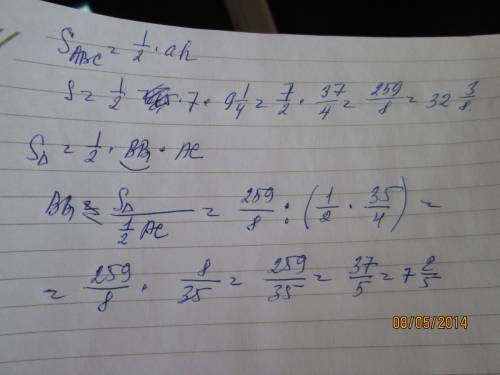 S_ABC = 1/2 · ah
S = 1/2 · 7 · 9 1/4 = 7/2 · 37/4 = 259/8 = 32 3/8
S_Δ = 1/2 · BB₁ · AC
BB₁ = S_Δ / (1/2 AC) = 259/8 : (1/2 · 35/4) =
= 259/8 · 8/35 = 259/35 = 37/5 = 7 2/5
08/05/2014